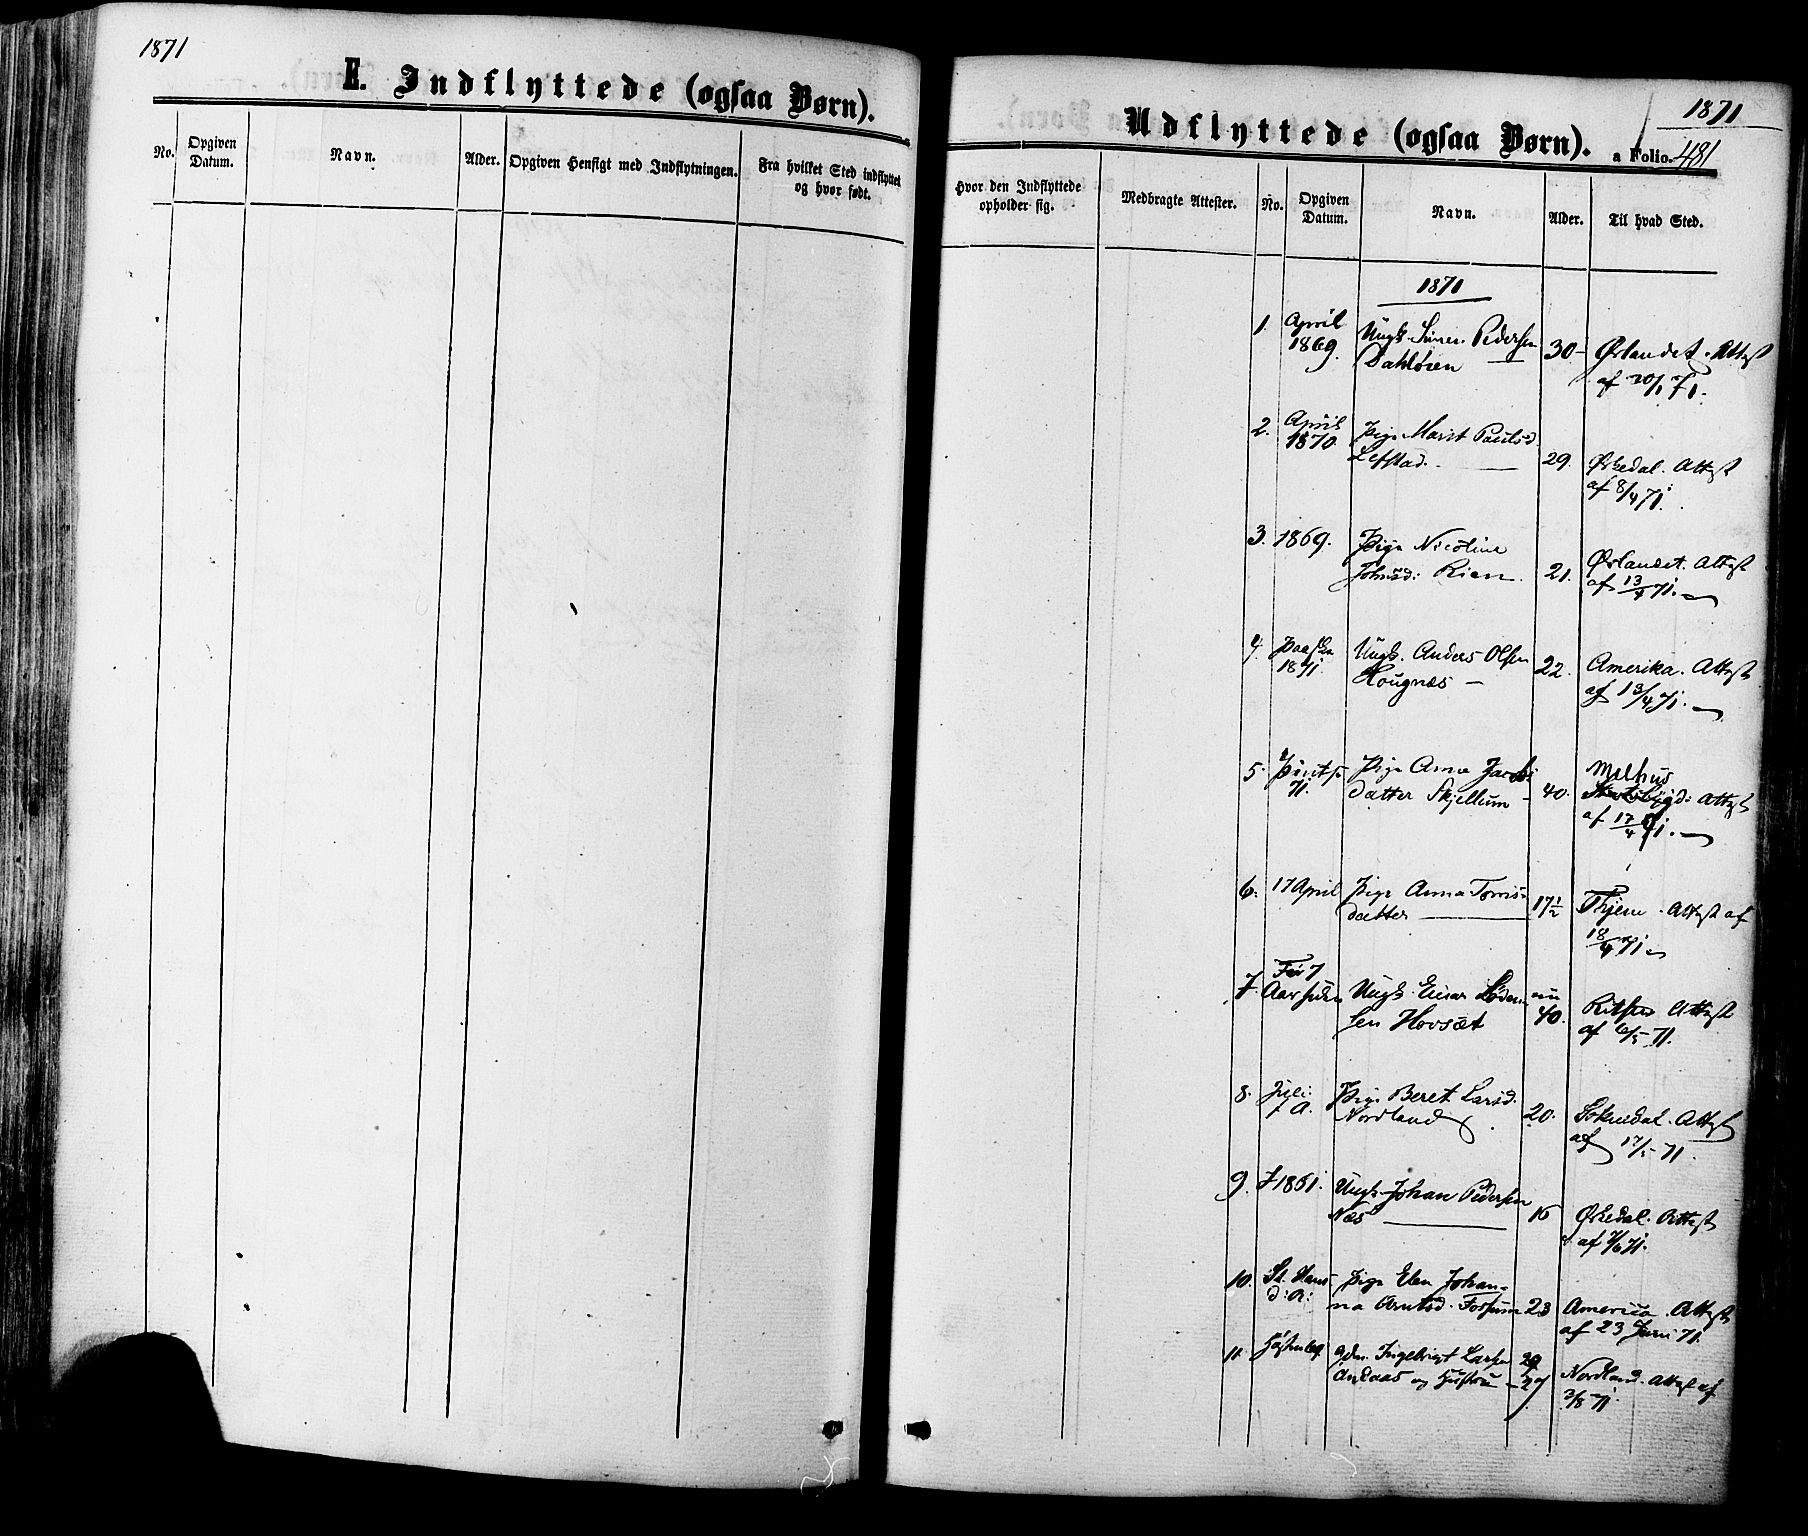 1871
E. Indflyttede (ogsaa Børn).
No.
Opgiven
Datum.
Navn.
Alder.
Opgiven Hensigt med Indflytningen.
Fra hvilket Sted indflyttet
og hvor født.
1871
Udflyttede (ogsaa Børn).
a Folio. 481
Hvor den Indflyttede
opholder sig.
Medbragte Attester.
No.
Opgiven
Datum.
Navn.
Alder.
Til hvad Sted.
1871
1. April
1869.
Ungk. Pedersen
30
Ørlandet. Attest
af 20/1 71.
2. April
1870
Pige Marit Paulsd.
Lefstad.
29.
Ørkedal. Attest
af 8/4 71.
3. 1869.
Pige Nicoline
Johnsd: Rien.
21.
Ørlandet. Attest
af 13/4 71.
4. Paaske
1871.
Ungk. Anders Olsen
Hougnæs
22.
Amerika. Attest
af 13/4 71.
5. Pintse
71.
Pige Anne Jacobs
datter Skjellum
40.
Melhus
Attest
af 17/4 71.
6. 17 April
Pige Anna Tørris
datter
17 1/2
Attest af
18/4 71
7. For 7
Aar siden
Ungk. Einar
sen Hovsæt
40.
Attest
af 6/5 71.
8. Juli
f. A.
Pige Beret Larsd.
Nordland
20.
Soknedal. Attest
af 17/5 71.
9. 1861.
Ungk. Johan Pedersen
Næs
16
Ørkedal. Attest
af 7/6 71.
10. St. Hans
d: A:
Pige Elen Johan-
na Arntsd. Forsum
23
America. Attest
af 23 Juni 71.
11. Høsten 69
Gdm. Ingebrigt Larsen
og Hustru
29
27
Nordland. Attest af
2/8 71.